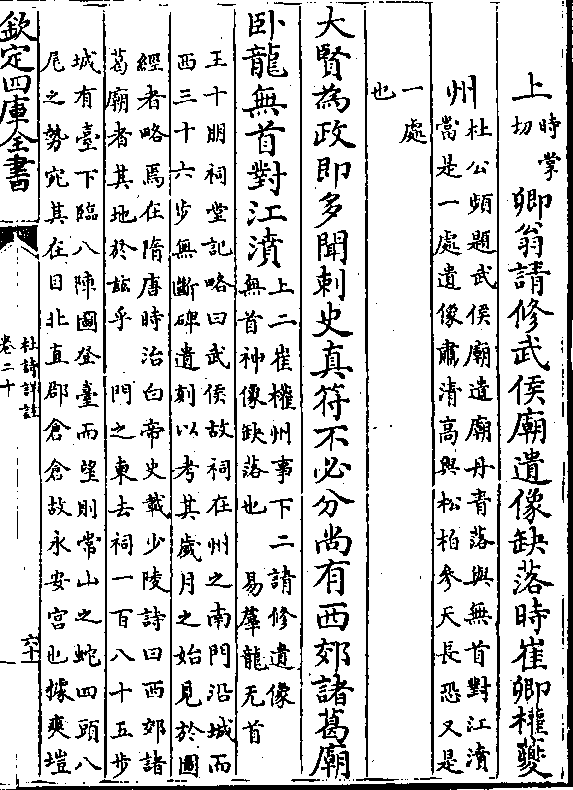 上時掌切卿翁請修武侯廟遺像缺落時崔卿權夔
州杜公頻題武侯廟遺廟丹青落與無首對江濆
當是一處遺像肅清高與松柏參天長恐又是
一處
也
大賢為政即多聞刺史真符不必分尚有西郊諸葛廟
卧龍無首對江濆上二崔權州事下二請修遺像
無首神像缺落也 易羣龍无首
王十朋祠堂記略曰武侯故祠在州之南門沿城而
西三十六步無斷碑遺刻以考其歲月之始見於圖
經者略焉在隋唐時治白帝史載少陵詩曰西郊諸
葛廟者其地於玆乎 門之東去祠一百八十五步
城有臺下臨八陣圖登臺而望則常山之蛇四頭八
尾之勢宛其在目北直郡倉倉故永安宮也據爽塏
欽定四庫全書
杜詩詳註
卷二十
六十一